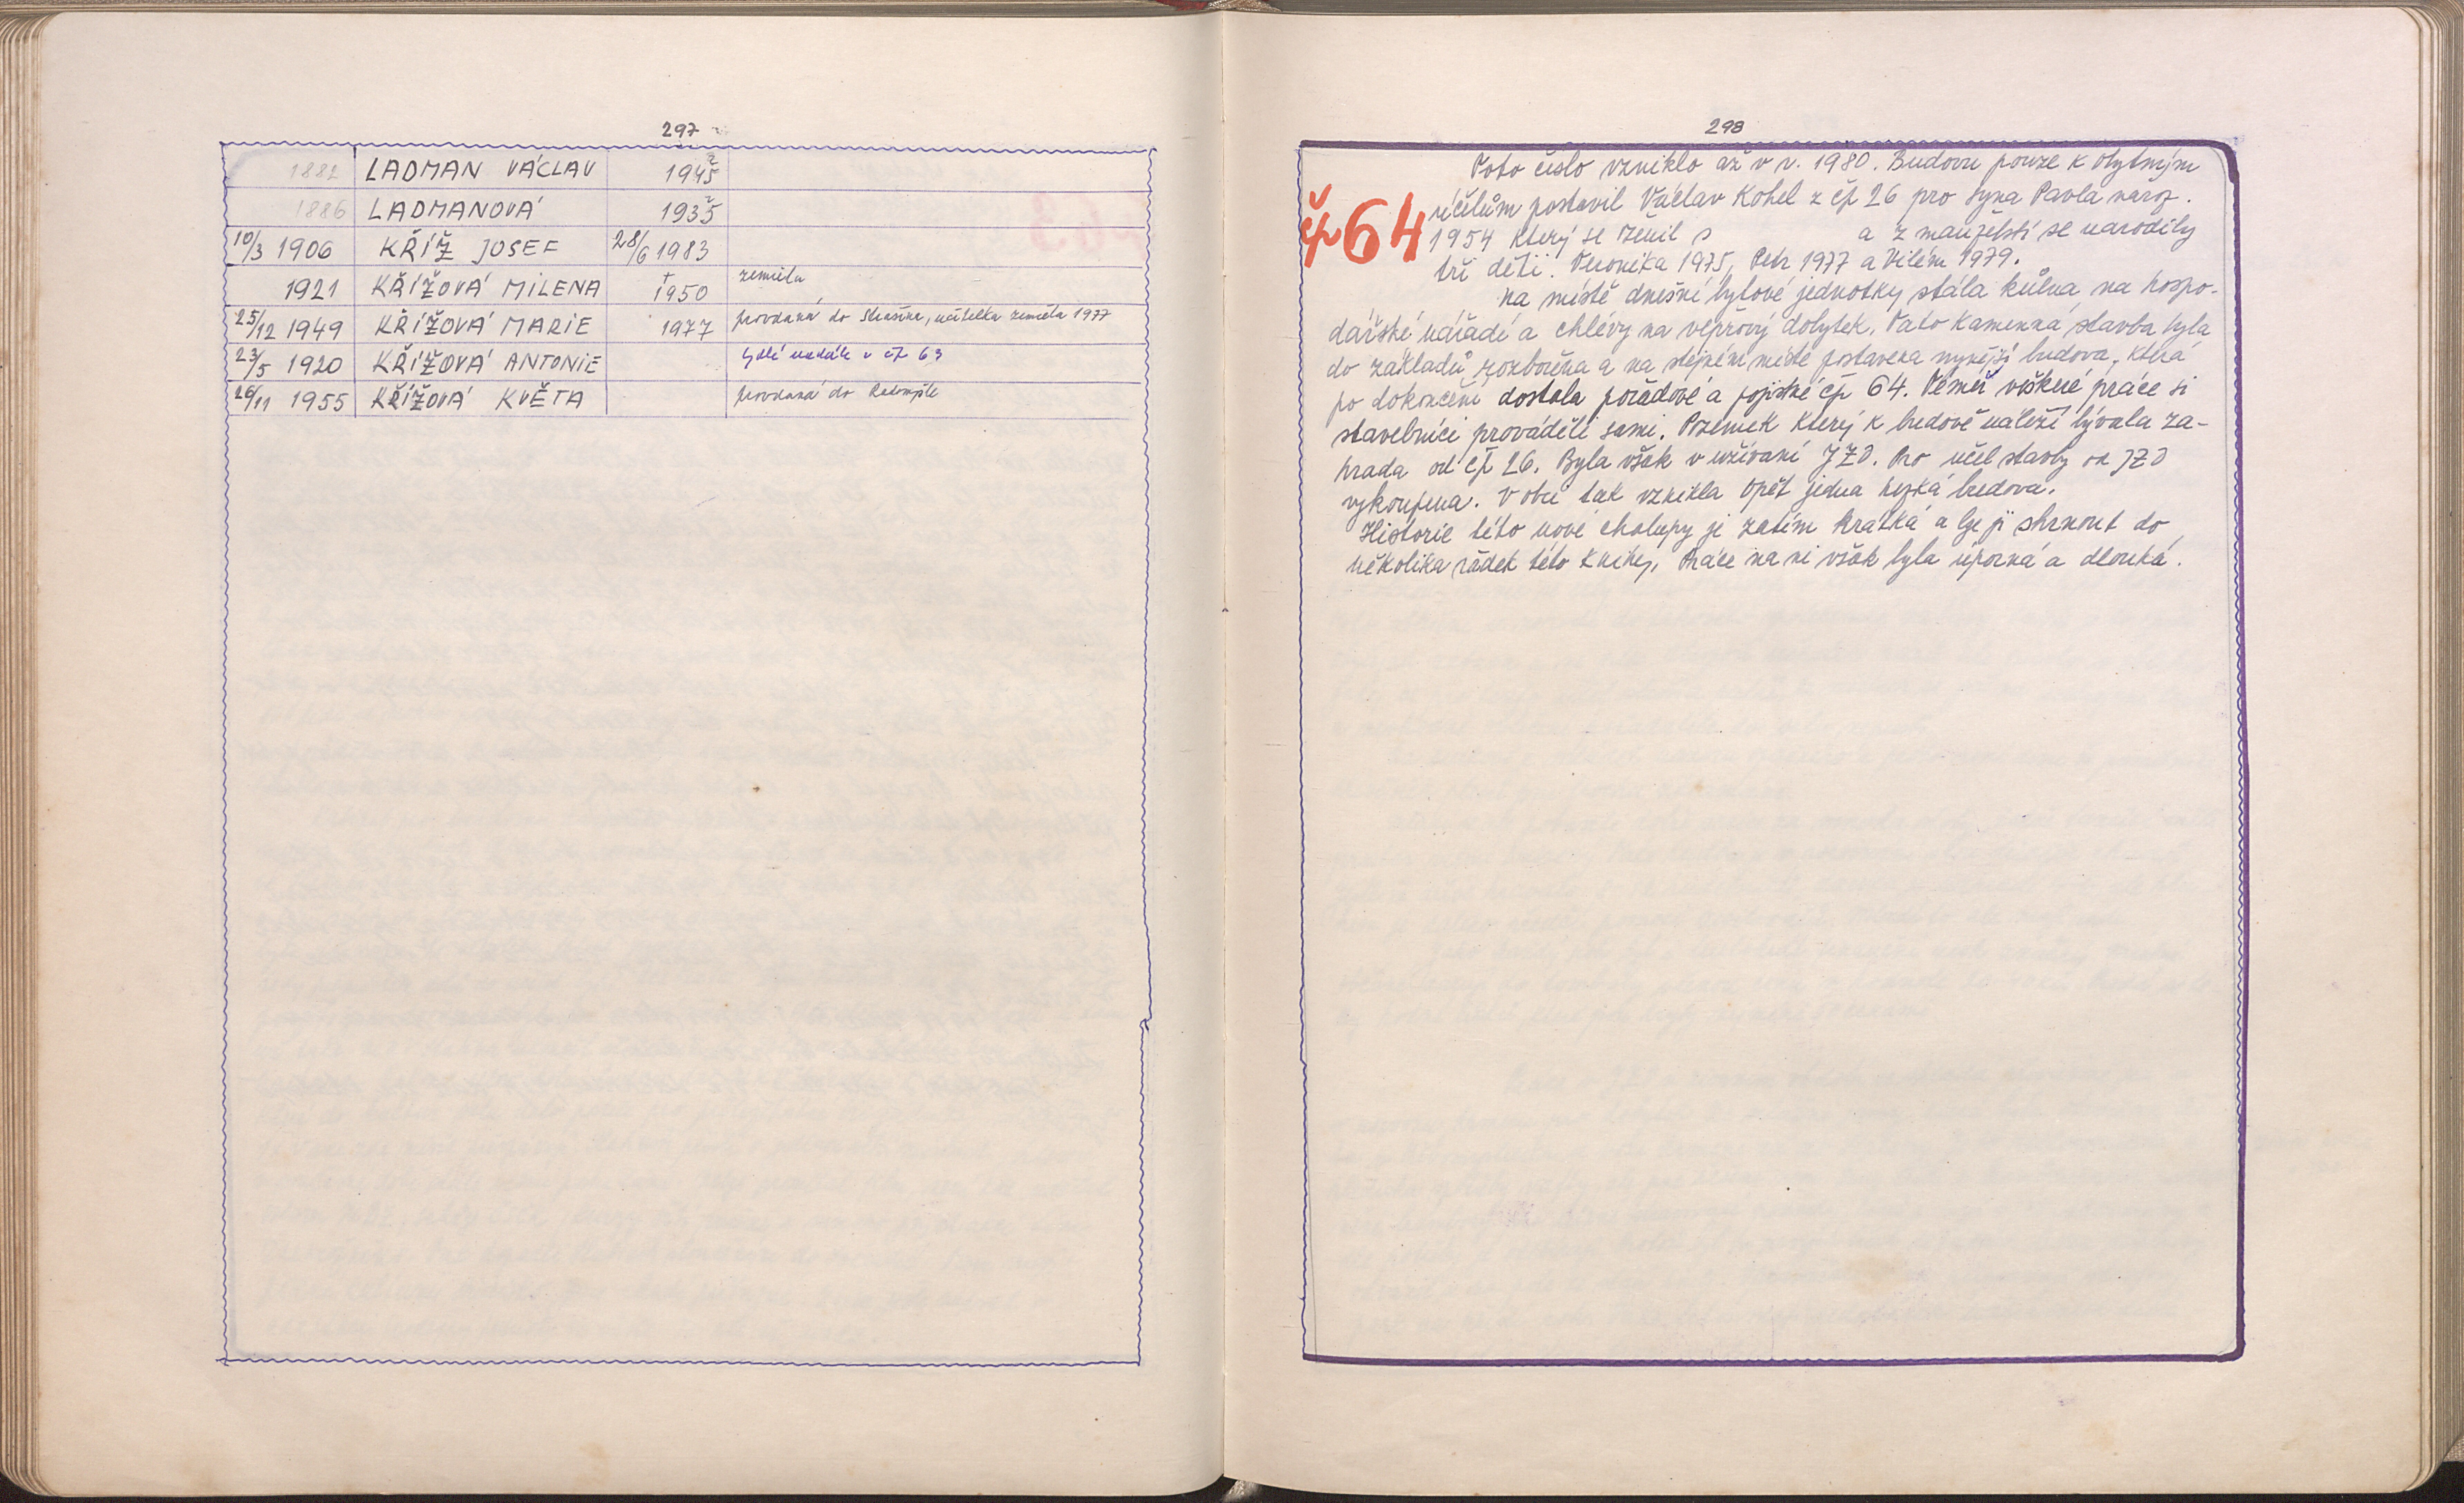 297
1882 LADMAN VÁCLAV 1945 ?
1886 LADMANOVÁ 1935 ?
10/3 1906 KŘÍŽ JOSEF 28/6 1983
1921 KŘÍŽOVÁ MILENA † 1950 zemřela
25/12 1949 KŘÍŽOVÁ MARIE 1977 provdaná do Strašína, učitelka zemřela 1977
23/5 1920 KŘÍŽOVÁ ANTONIE bydlí nadále v čp 63
26/11 1955 KŘÍŽOVÁ KVĚTA provdaná do Radomyšle
298
čp 64
Toto číslo vzniklo až v r. 1980. Budovu pouze k obytným
účelům postavil Václav Kohel z čp 26 pro syna Pavla naroz.
1954 který se ženil s a z manželství se narodily
tři děti. Veronika 1975, Petr 1977 a Vilém 1979.
Na místě dnešní bytové jednotky stála kůlna na hospo-
dářské nářadí a chlévy na vepřový dobytek. Tato kamenná stavba byla
do základů rozbořena a na stejném místě postavena nynější budova, která
po dokončení dostala pořadové a popisné čp 64. Téměř veškeré práce si
stavebníci prováděli sami. Pozemek který k budově náleží bývala za-
hrada od čp 26. Byla však v užívaní JZD. Pro účel stavby od JZD
vykoupena. V obci tak vznikla opět jedna hezká budova.
Historie této nové chalupy je zatím krátká a lze ji shrnout do
několika řádek této knihy. Práce na ni však byla úporná a dlouhá.